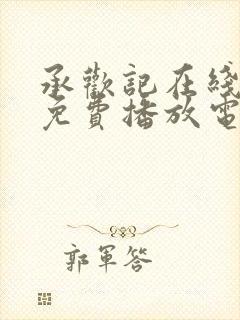 承歡記在綫
免費播放電
郭軍答